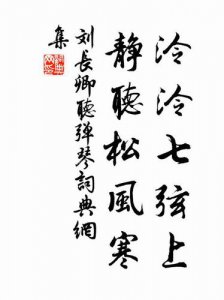 泠泠七弦上
靜聽松風寒
刘長卿聽弹琴詞典網
集